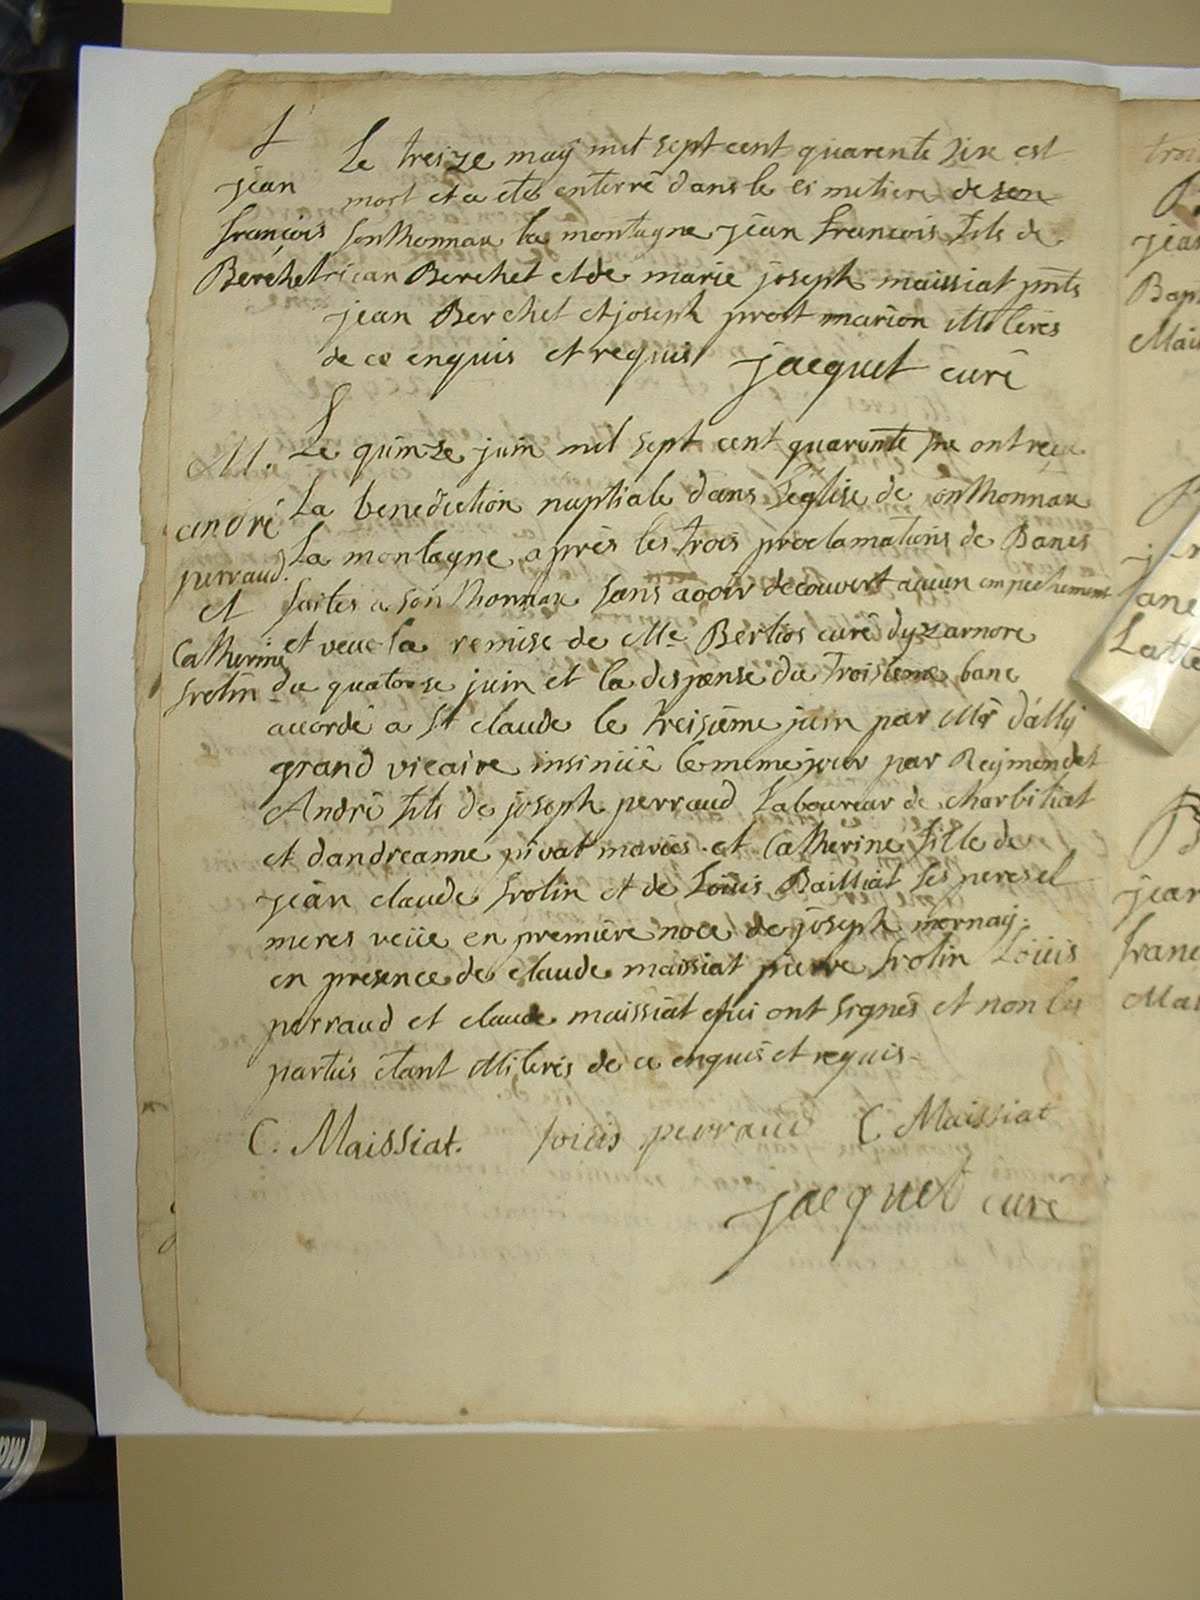 †
jean
françois
Berchet
Le treize may mil sept cent quarente sixe est
mort et a eté enterré dans le cimetiere de son
sonthonnax la montagne jean francois fils de
jean Berchet et de marie joseph maissiat pnts
jean Berchet et joseph prost marion illiterés
de ce enquis et requis jacquet curé
M.
andré
perraud
et
Catherine
frolin
Le quinze juin mil sept cent quarante sixe ont reçu
La benediction nuptiale dans l'eglise de sonthonnax
La montagne après les trois proclamations de Bancs
faites a sonthonnax sans avoir decouvert aucun empechement
et veue la remise de Me Berlios curé dyzarnore
du quatorse juin et la dispense du troisieme banc
accordé a St claude le treisième juin par Mr d'ally
grand vicaire insinüé le meme jour par Reymondet
André fils de joseph perraud Laboureur de charbiliat
et dandreanne pivat mariés et Catherine fille de
jean claude frolin et de Loüis Baissiat ses peres et
meres veüe en première noce de joseph mornay
en presence de claude maissiat pierre frolin Loüis
perraud et claude maissiat qui ont signés et non les
partiés etant illiterés de ce enquis et requis
C. Maissiat. loüis perraud C. Maissiat
jacquet curé
jean
Bap
Mai
Latte
jean
franc
Mai